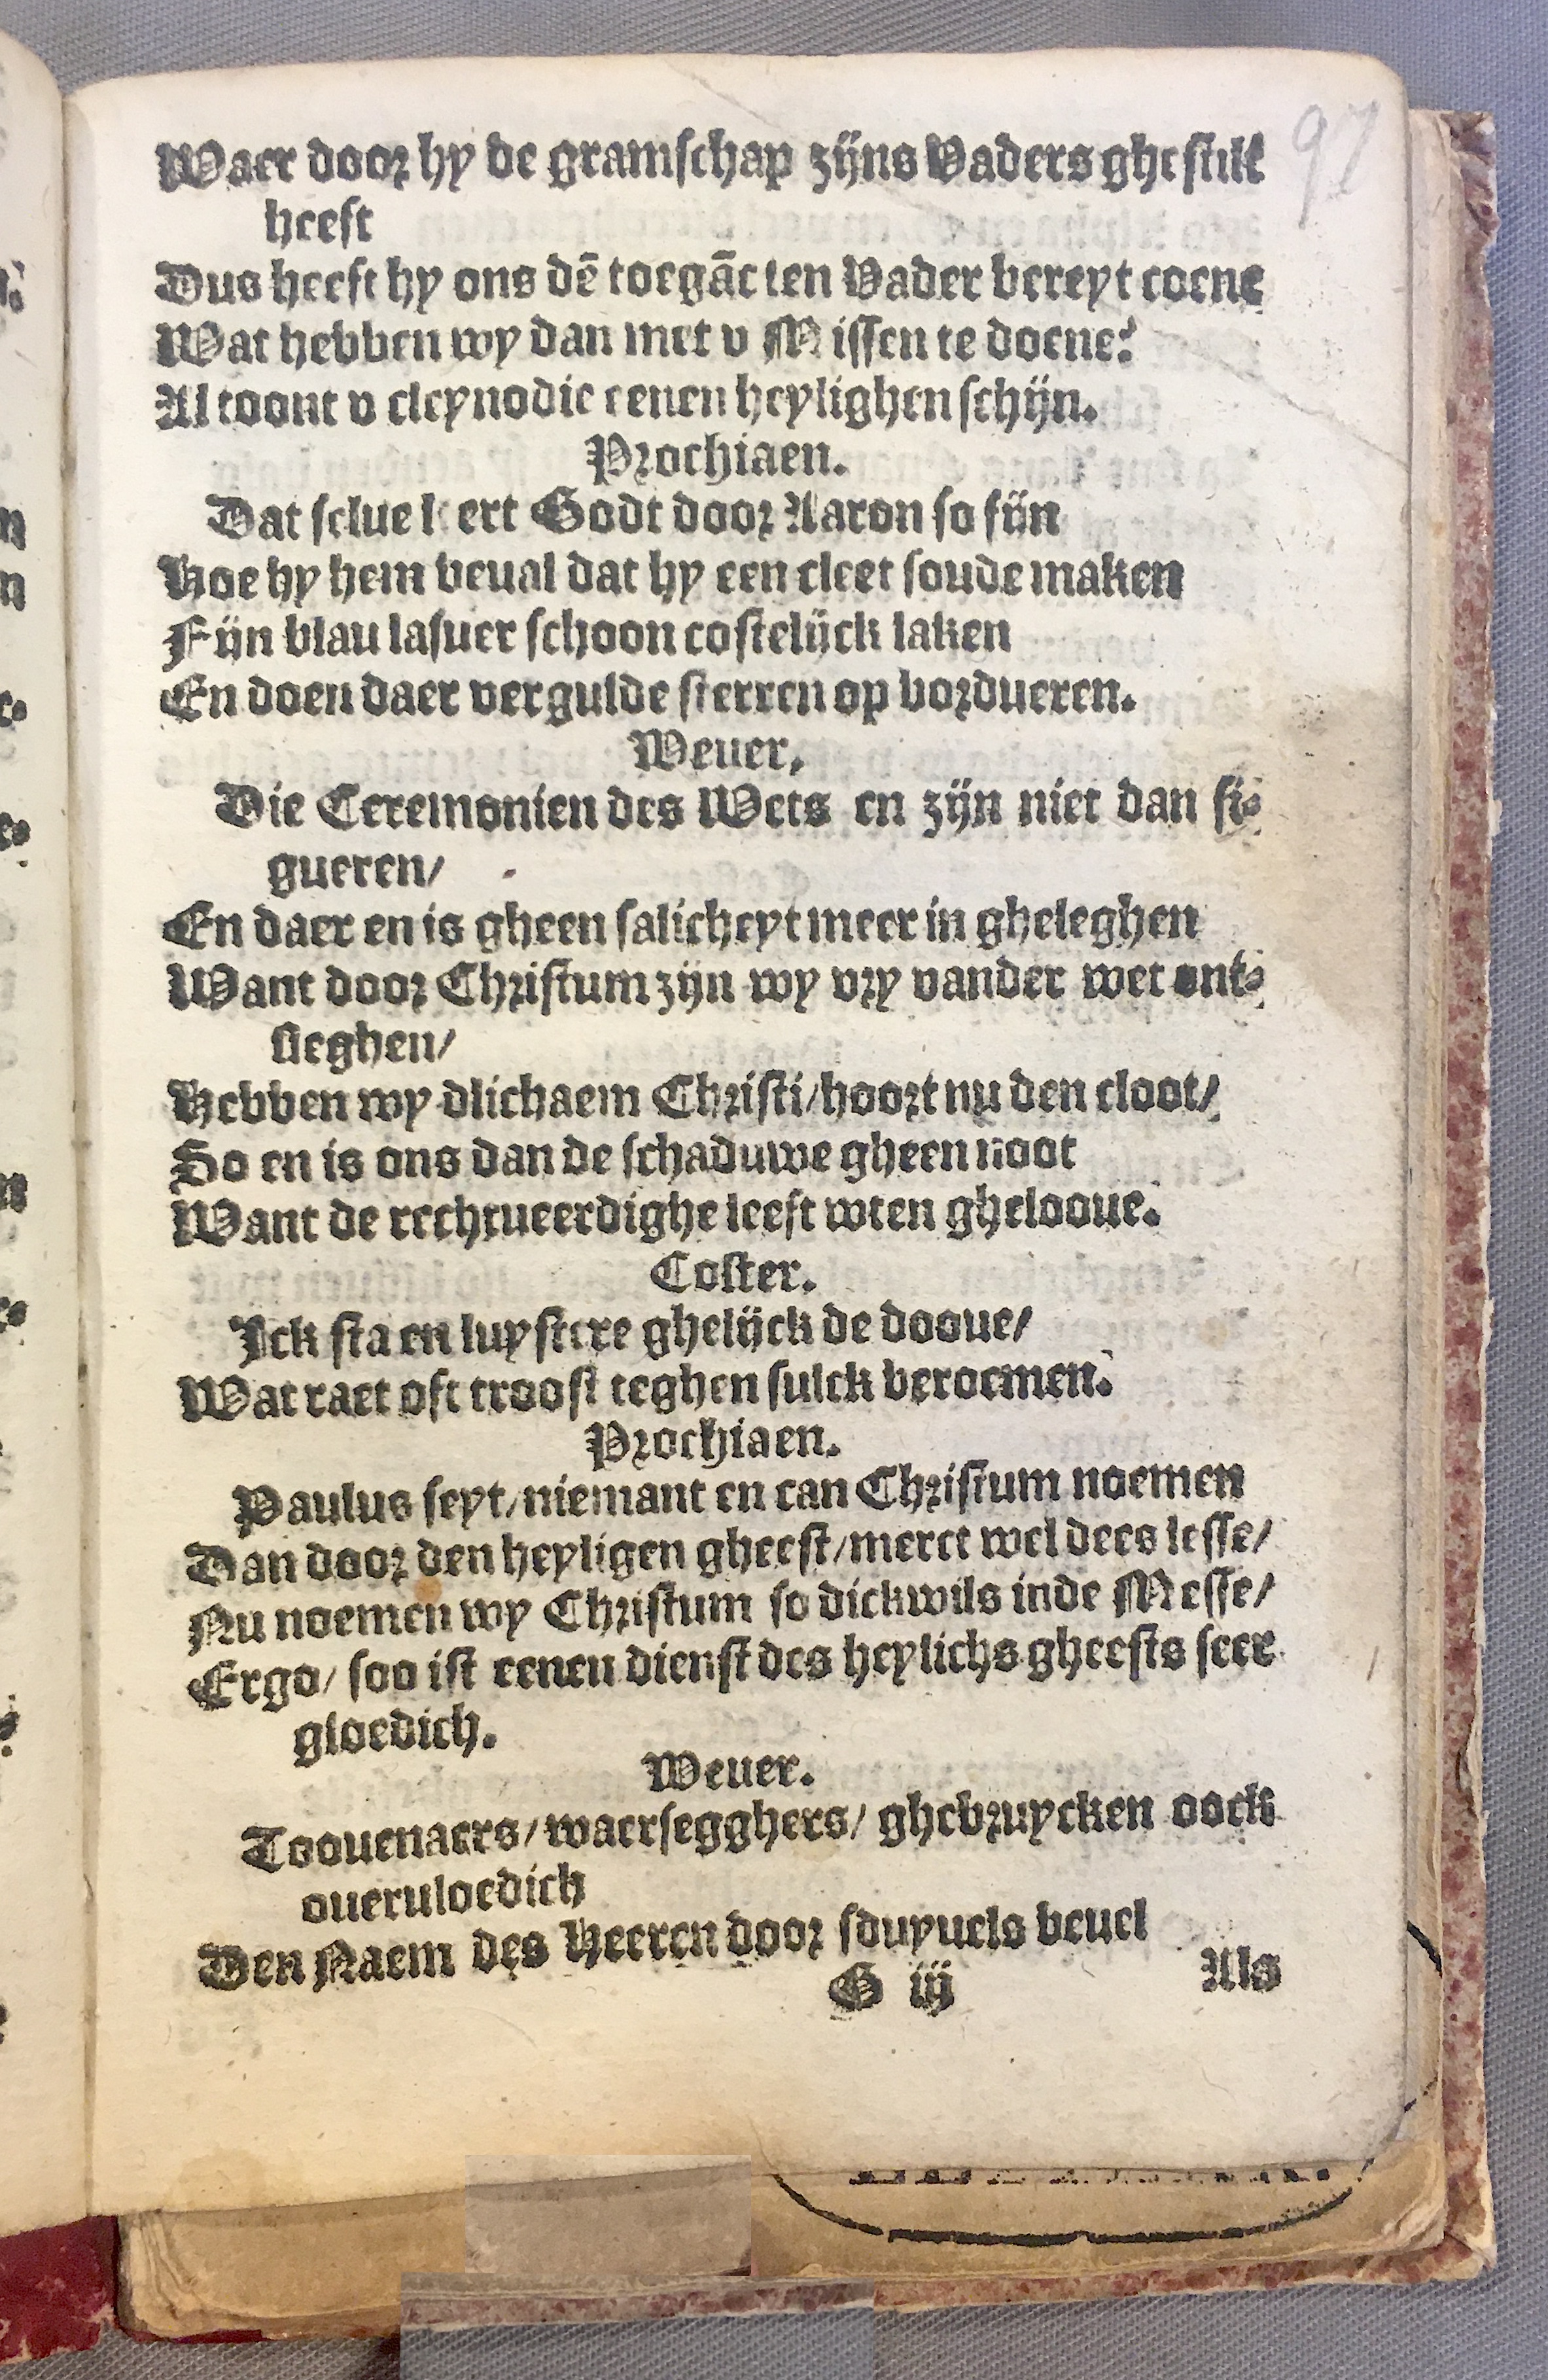 97
Waer door hy de gramschap zijns Vaders ghestilt
heeft
Dus heeft hy ons dē toegāc ten Vader bereyt coene
Wat hebben wy dan met v Missen te doene?
Al toont v cleynodie eenen heylighen schijn.
Prochiaen.
Dat selue leert Godt door Aaron so fijn
Hoe hy hem beual dat hy een cleet soude maken
Fijn blau lasuer schoon costelijck laken
En doen daer vergulde sterren op bordueren.
Weuer.
Die Ceremonien des Wets en zijn niet dan fi-
gueren/
En daer en is gheen salicheyt meer in gheleghen
Want door Christum zijn wy vry vander wet ont-
sleghen/
Hebben wy dlichaem Christi/hoort nu den cloot/
So en is ons dan de schaduwe gheen noot
Want de rechtueerdighe leeft wten ghelooue.
Coster.
Ick sta en luystere ghelijck de dooue/
Wat raet oft troost teghen sulck beroemen.
Prochiaen.
Paulus seyt/niemant en can Christum noemen
Dan door den heyligen gheest/merct wel dees lesse/
Nu noemen wy Christum so dickwils inde Messe/
Ergo/ soo ist eenen dienst des heylichs gheests seer
gloedich.
Weuer.
Toouenaers/waersegghers/ ghebruycken oock
oueruloedich
Den Naem des Heeren door sduyuels beuel
G iij
Als